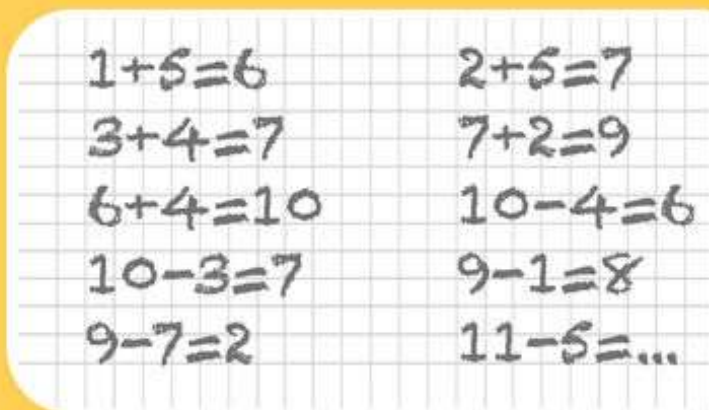 1+5=6
3+4=7
6+4=10
10-3=7
9-7=2
2+5=7
7+2=9
10-4=6
9-1=8
11-5=...